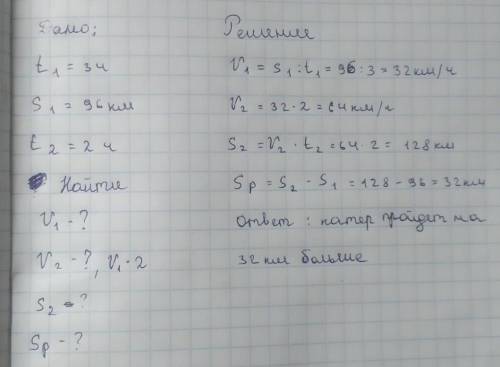 Дано:
t1 = 3ч
S1 = 96 км
t2 = 2 ч
Найти
V1 - ?
V2 - ?, V1·2
S2 - ?
Sр - ?
Решение
V1 = S1 : t1 = 96 : 3 = 32 км/ч
V2 = 32 · 2 = 64 км/ч
S2 = V2 · t2 = 64 · 2 = 128 км
Sр = S2 - S1 = 128 - 96 = 32 км
Ответ : катер пройдет на
32 км больше